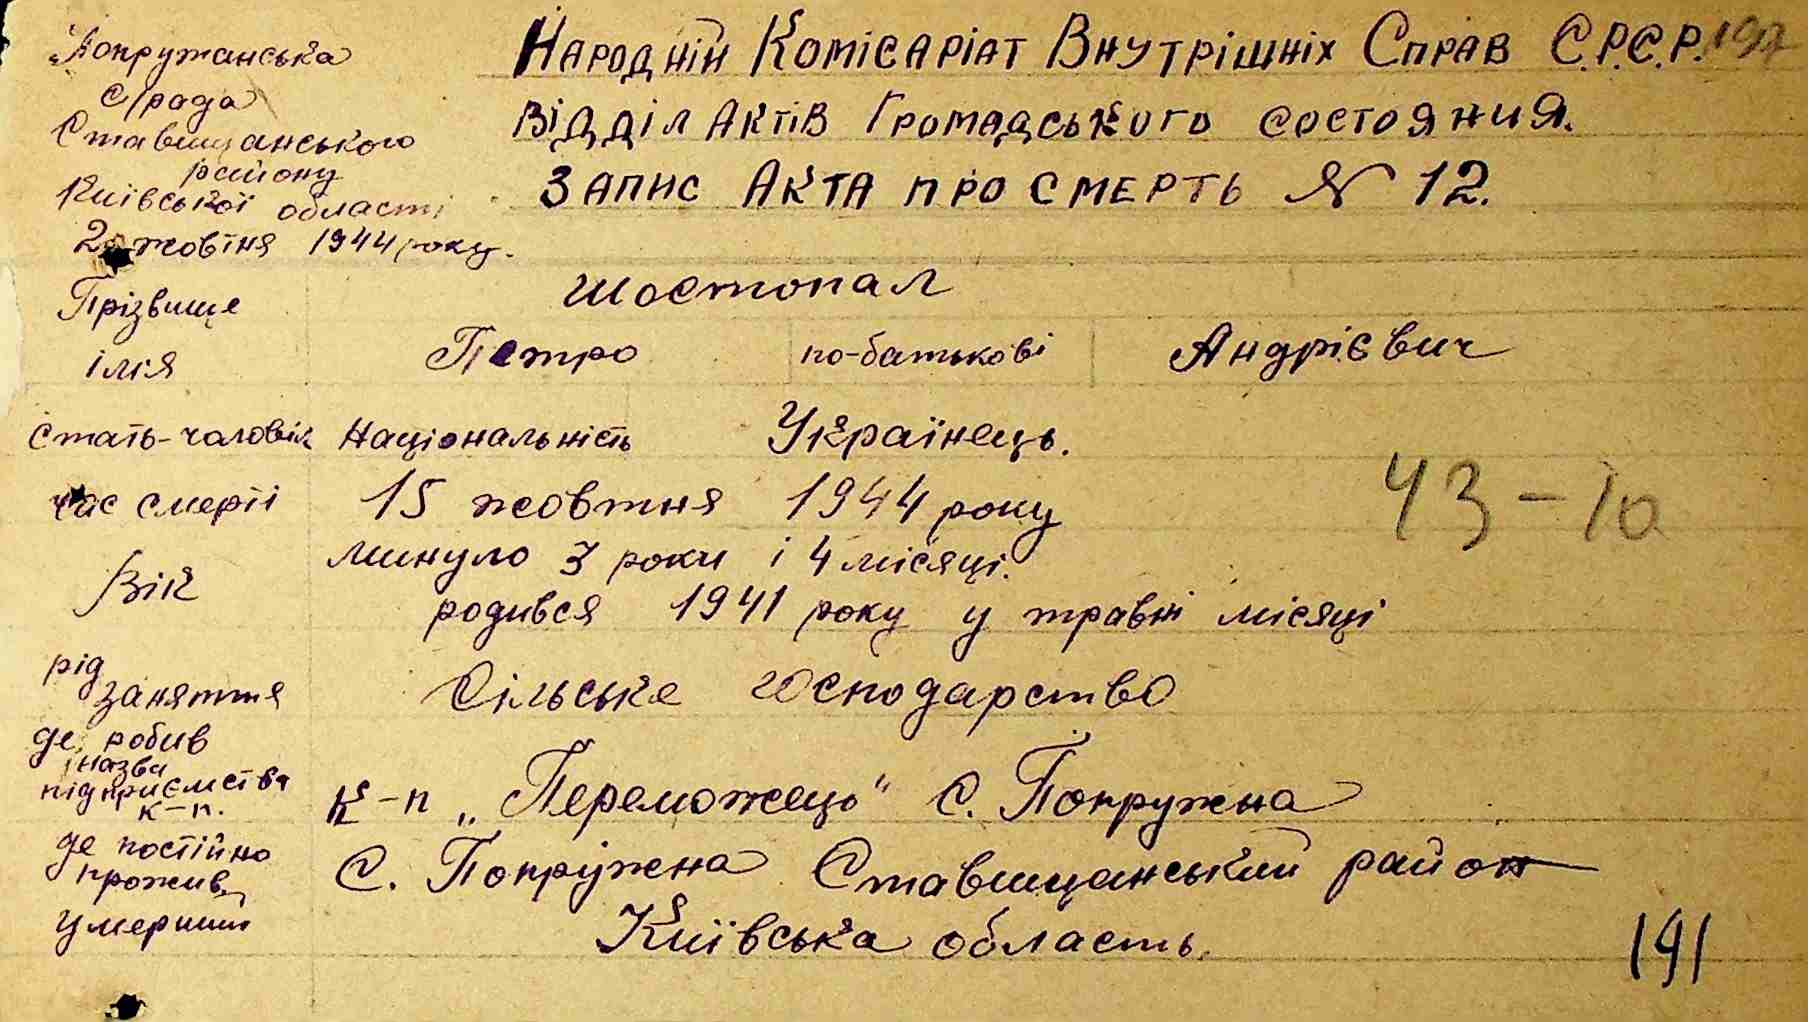 Попружанська
с/рада
Ставищанського
району
Київської області
2 жовтня 1944 року.
Народній Комісаріат Внутрішніх Справ С.Р.С.Р.
Відділ Актів Громадського состояния.
Запис Акта про смерть № 12.
Прізвище Шостопал
імя Петро по-батькові Андрієвич
Стать-чоловік Національність Українець.
час смерті 15 жовтня 1944 року
43-10
Вік минуло 3 роки і 4 місяці.
родився 1941 року у травні місяці
рід
заняття Сільське господарство
де робив
назва
підприємства
к-п. к-п „Переможець" с. Попружна
де постійно
прожив. с. Попружена Ставищанський район
умерший Київська область.
191